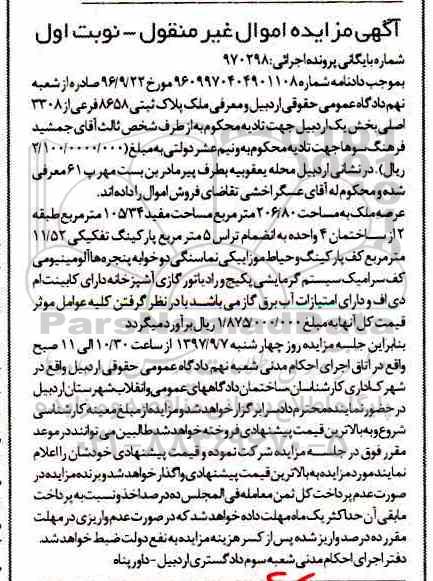 آگهی مزایده اموال غیر منقول - نوبت اول
شماره بایگانی پرونده اجرائی: ۹۷۰۲۹۸
بموجب دادنامه شماره ۹۶۰۹۹۷۰۴۰۴۹۰۱۱۰۸ مورخ ۹۶/۹/۲۲ صادره از شعبه
نهم دادگاه عمومی حقوقی اردبیل و معرفی ملک پلاک ثبتی ۸۶۵۸ فرعی از ۳۳۰۸
اصلی بخش یک اردبیل جهت تادیه محکوم به از طرف شخص ثالث آقای جمشید
فرهنگ سوها جهت تادیه محکوم به و نیم عشر دولتی به مبلغ (۲/۱۰۰/۰۰۰۰/۰۰۰
ریال). در نشانی اردبیل محله یعقوبیه بطرف پیرمادر بن بست مهر پ ۶۱ معرفی
شده و محکوم له آقای عسگر اخشی تقاضای فروش اموال را داده اند.
عرصه ملک به مساحت ۲۰۶/۸۰ متر مربع مساحت مفید ۱۰۵/۳۴ متر مربع طبقه
۲ از ساختمان ۴ واحده به انضمام تراس ۵ متر مربع پارکینگ تفکیکی ۱۱/۵۲
متر مربع کف پارکینگ و حیاط موزاییکی نما سنگی دو خوابه پنجره ها آلومینیومی
کف سرامیک سیستم گرمایشی پکیج و رادیاتور گازی آشپزخانه دارای کابینت ام
دی اف و دارای امتیازات آب برق گاز می باشد با در نظر گرفتن کلیه عوامل موثر
قیمت کل آنها به مبلغ ۱/۸۷۵/۰۰۰/۰۰۰ ریال برآورد میگردد
بنابراین جلسه مزایده روز چهارشنبه ۱۳۹۷/۹/۷ از ساعت ۱۰/۳۰ الی ۱۱ صبح
واقع در اتاق اجرای احکام مدنی شعبه نهم دادگاه عمومی حقوقی اردبیل واقع در
شهرک اداری کارشناسان ساختمان دادگاههای عمومی و انقلاب شهرستان اردبیل
در حضور نماینده محترم دادسرا برگزار خواهد شد و مزایده از مبلغ معینه کارشناسی
شروع و به بالاترین قیمت پیشنهادی فروخته خواهد شد طالبین می توانند در موعد
مقرر فوق در جلسه مزایده شرکت نموده و قیمت پیشنهادی خودشان را اعلام
نمایند مورد مزایده به بالاترین قیمت پیشنهادی واگذار خواهد شد و برنده مزایده در
صورت عدم پرداخت کل ثمن معامله فی المجلس ده درصد اخذ و نسبت به پرداخت
مابقی آن حداکثر یک ماه مهلت داده خواهد شد که در صورت عدم واریزی در مهلت
مقرر ده درصد واریز شده پس از کسر هزینه مزایده به نفع دولت ضبط خواهد شد.
دفتر اجرای احکام مدنی شعبه سوم دادگستری اردبیل - داور پناه